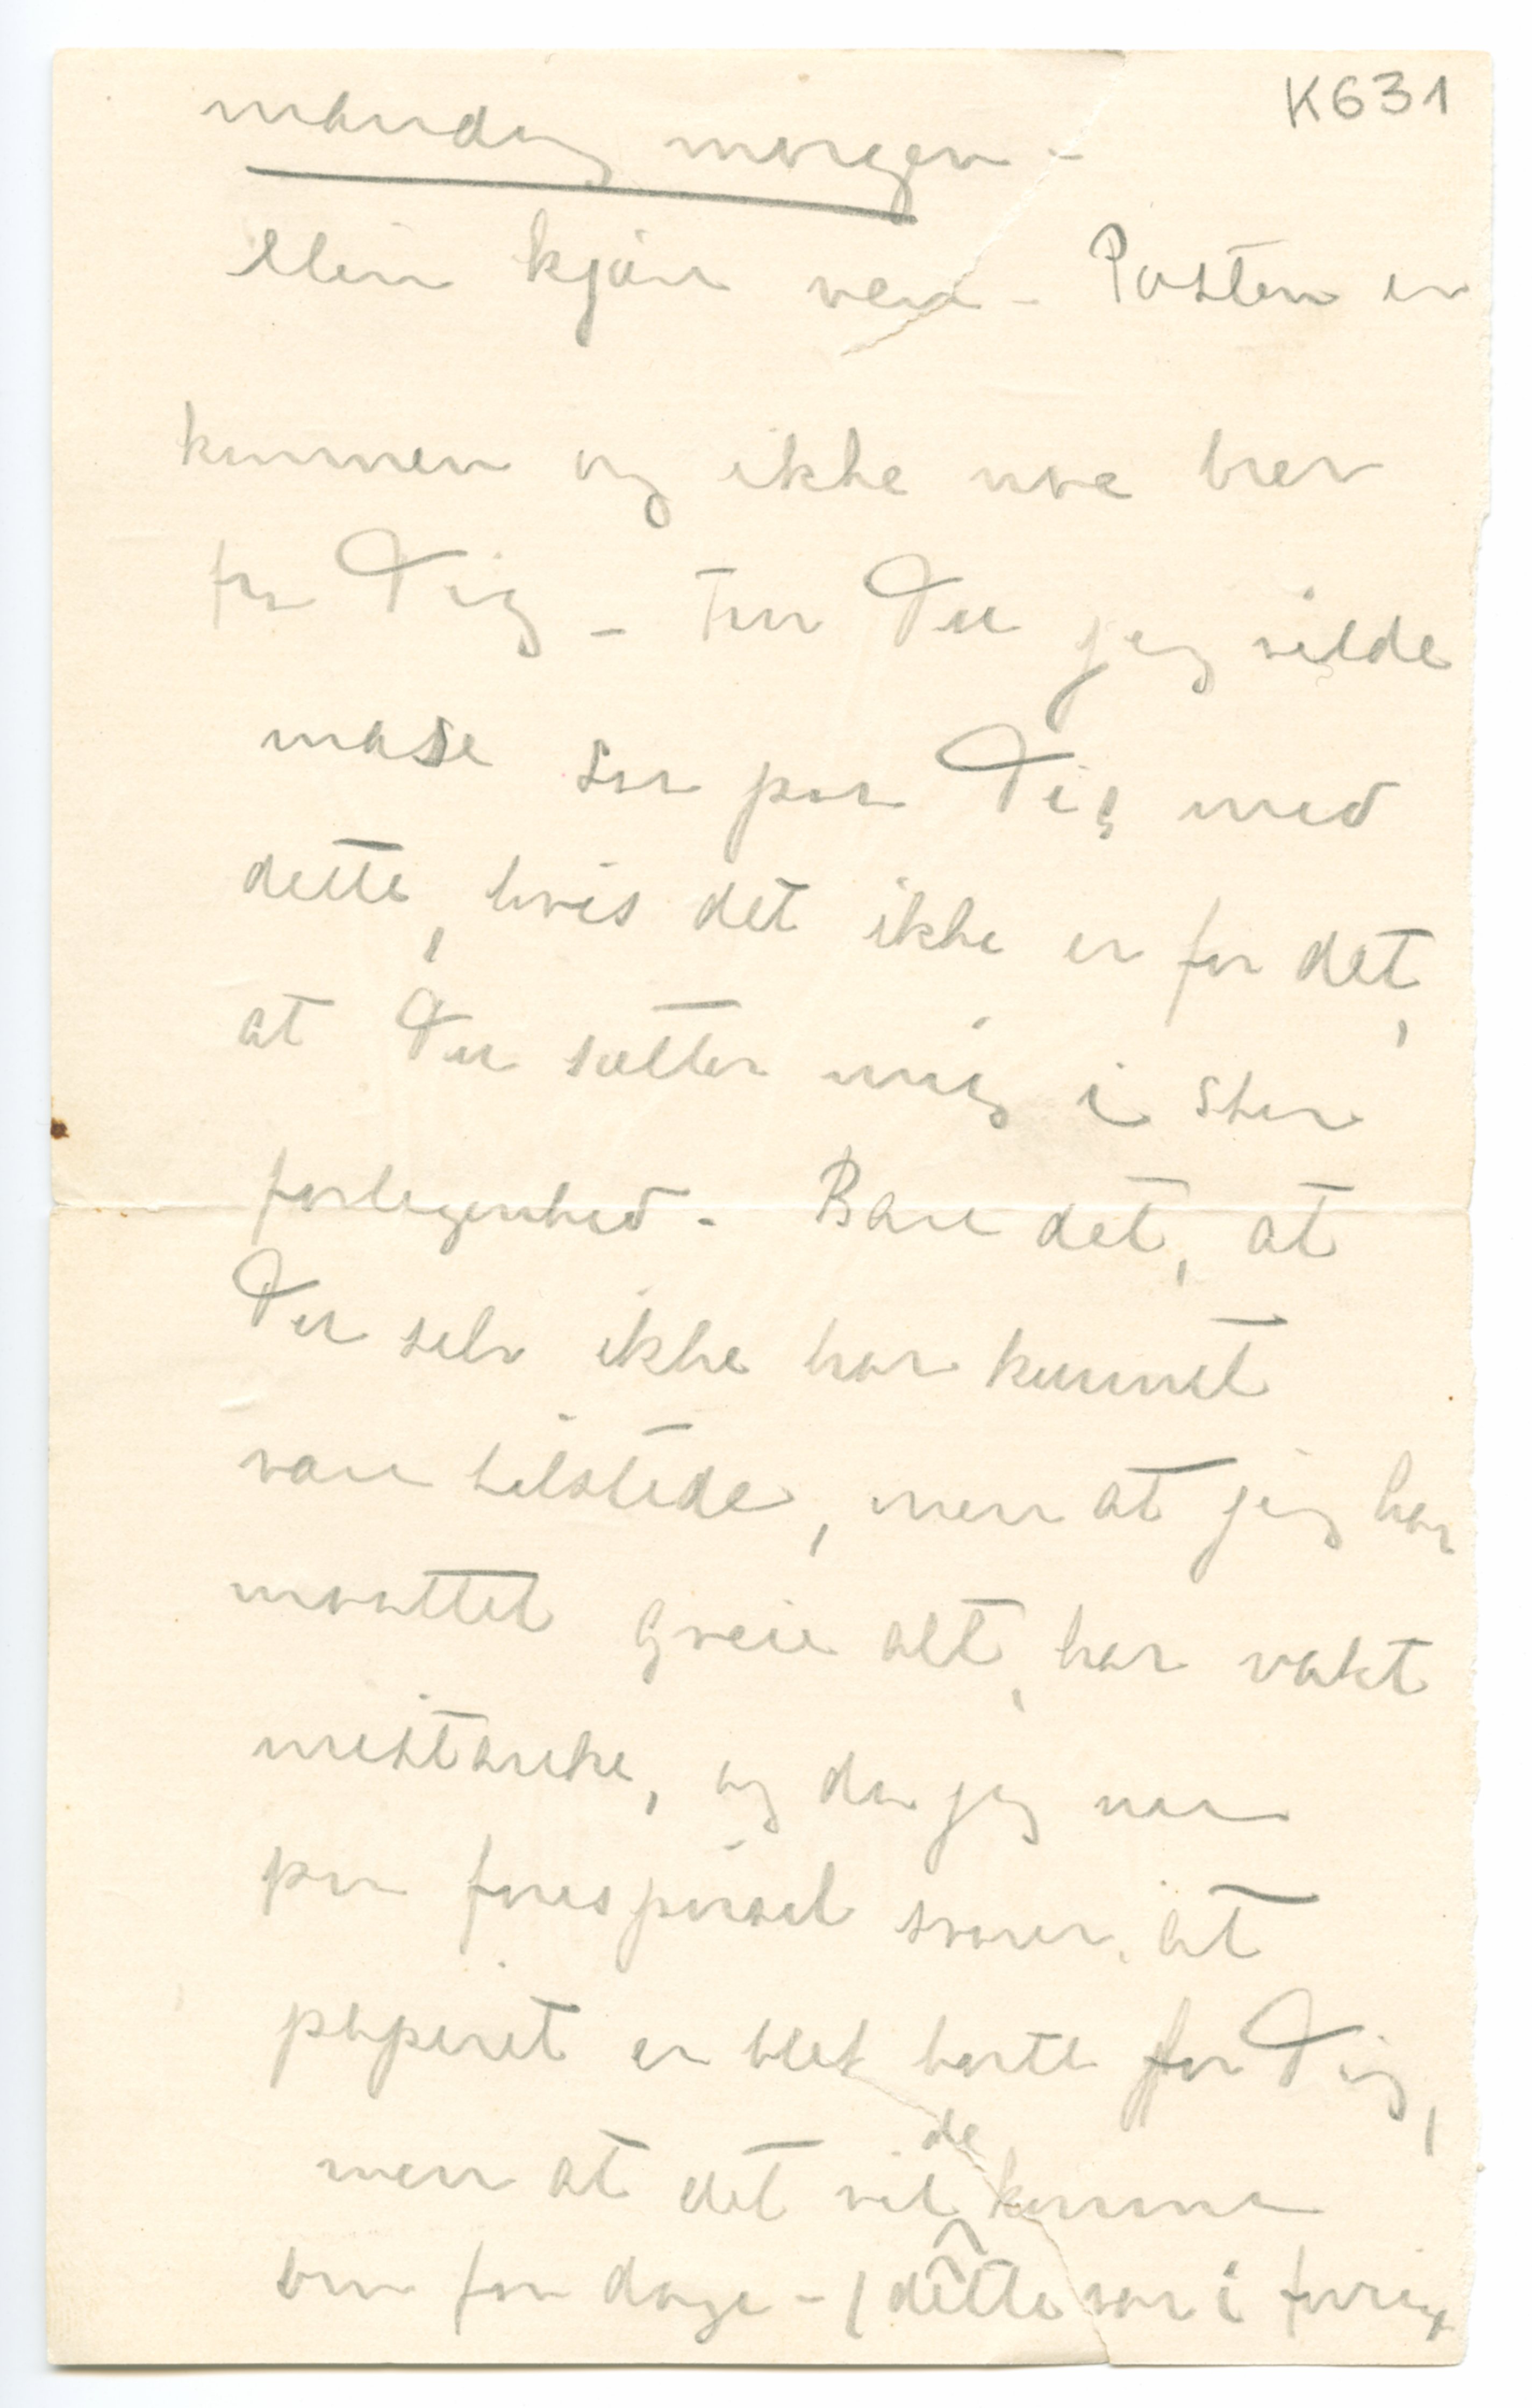 K631
mandag morgen -
Min kjære ven - Posten er
kommen og ikke noe brev
fra Dig - Tror Du jeg vilde
mase saa paa Dig med
dette, hvis det ikke er for det,
at Du sætter mig i stor
forlegenhed. Bare det, at
Du selv ikke har kunnet
være tilstede, men at jeg har
maattet greie alt, har vakt
mistanke, og da jeg naa
paa forespørsel svarer, at
papiret er blet borte for Dig,
men at det vilde komme
om faa dage - (dette var i forrige